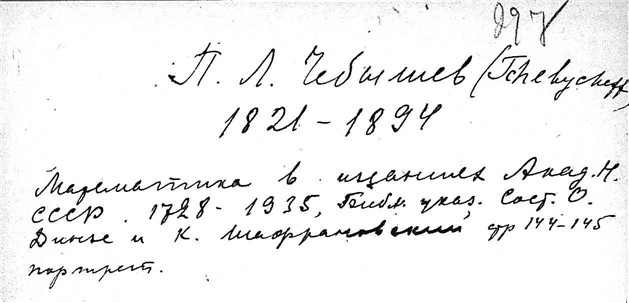 297
П. Л. Чебышев (Tchebycheff)
1821 - 1894
Математика в изданиях Акад. Н.
СССР. 1728 - 1935, Библ. указ. Сост. О.
Динзе и К. Шафрановский стр 144-145
портрет.